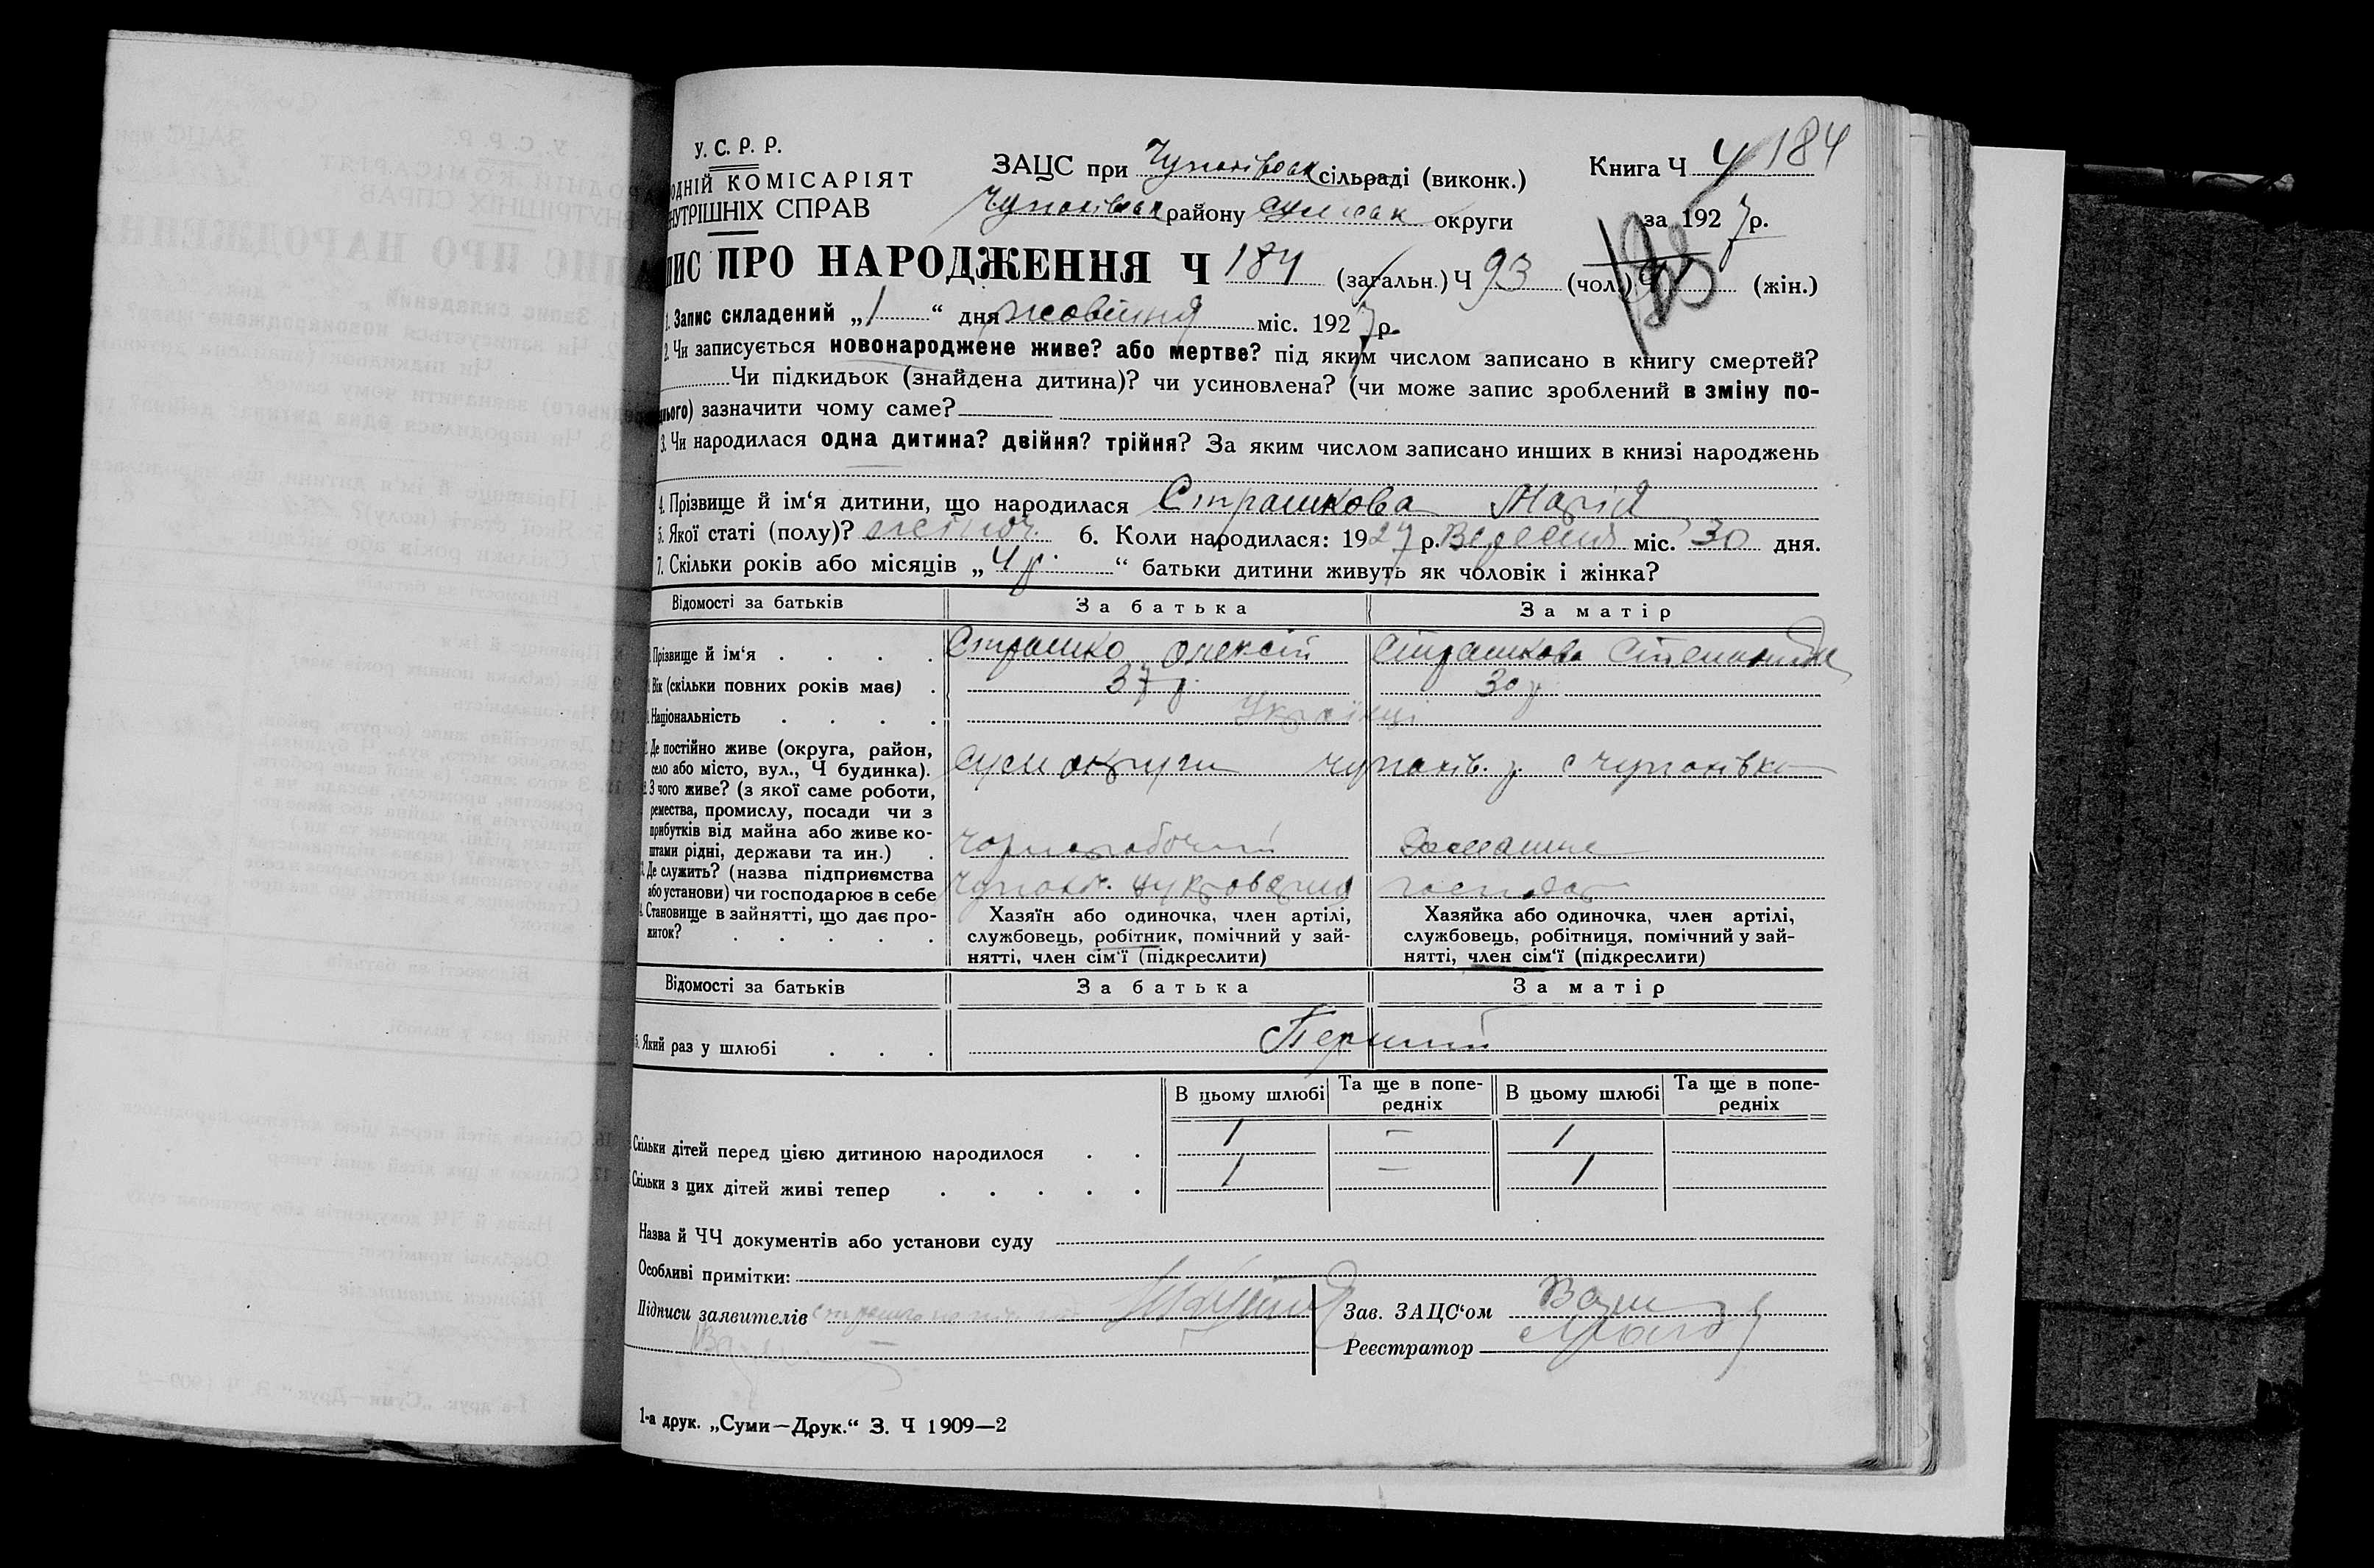 У. С. Р. Р.
ОДНІЙ КОМІСАРІЯТ
НУТРІШНІХ СПРАВ
ЗАЦС при Чупахівськ сільраді (виконк.)
Чупахівськ району Сумськ округи
Книга Ч 4 184
за 1927 р.
ПИС ПРО НАРОДЖЕННЯ Ч 184 (загальн.) Ч 93 (чол.) Ч (жін.)
1. Запис складений „1“ дня жовтня міс. 1927 р.
2. Чи записується новонароджене живе? або мертве? під яким числом записано в книгу смертей?
Чи підкидьок (знайдена дитина)? чи усиновлена? (чи може запис зроблений в зміну по-
нього) зазначити чому саме?
3. Чи народилася одна дитина? двійня? трійня? За яким числом записано инших в книзі народжень
4. Прізвище й ім‘я дитини, що народилася Страшкова Марія
5. Якої статі (полу)? жіноч 6. Коли народилася: 1927 р. Вересня міс. 30 дня.
7. Скільки років або місяців „4 р.“ батьки дитини живуть як чоловік і жінка?
Відомості за батьків За батька За матір
Прізвище й ім‘я . . . . Страшко Олексій Страшкова Степанида
Вік (скільки повних років має) . 37 р. 30 р
Національність . . . . Українці
Де постійно живе (округа, район,
село або місто, вул., Ч будинка). Сум округи Чупахів. р. с Чупахівка
З чого живе? (з якої саме роботи,
ремества, промислу, посади чи з
прибутків від майна або живе ко-
штами рідні, держави та ин.) . Чорноробочий Домашнє
Де служить? (назва підприємства
або установи) чи господарює в себе Чупахів. цукроварня господар
Становище в зайнятті, що дає про-
житок? . . . . .
Хазяїн або одиночка, член артілі,
службовець, робітник, помічний у зай-
нятті, член сім‘ї (підкреслити)
Хазяйка або одиночка, член артілі,
службовець, робітниця, помічний у зай-
нятті, член сім‘ї (підкреслити)
Відомості за батьків За батька За матір
Який раз у шлюбі . . . Перший
В цьому шлюбі Та ще в попе-
редніх В цьому шлюбі Та ще в попе-
редніх
Скільки дітей перед цією дитиною народилося . . 1 — 1
Скільки з цих дітей живі тепер . . . . . 1 — 1
Назва й ЧЧ документів або установи суду
Особливі примітки:
Підписи заявителів
Зав. ЗАЦС‘ом
Реєстратор
1-а друк. „Суми—Друк.“ З. Ч 1909—2